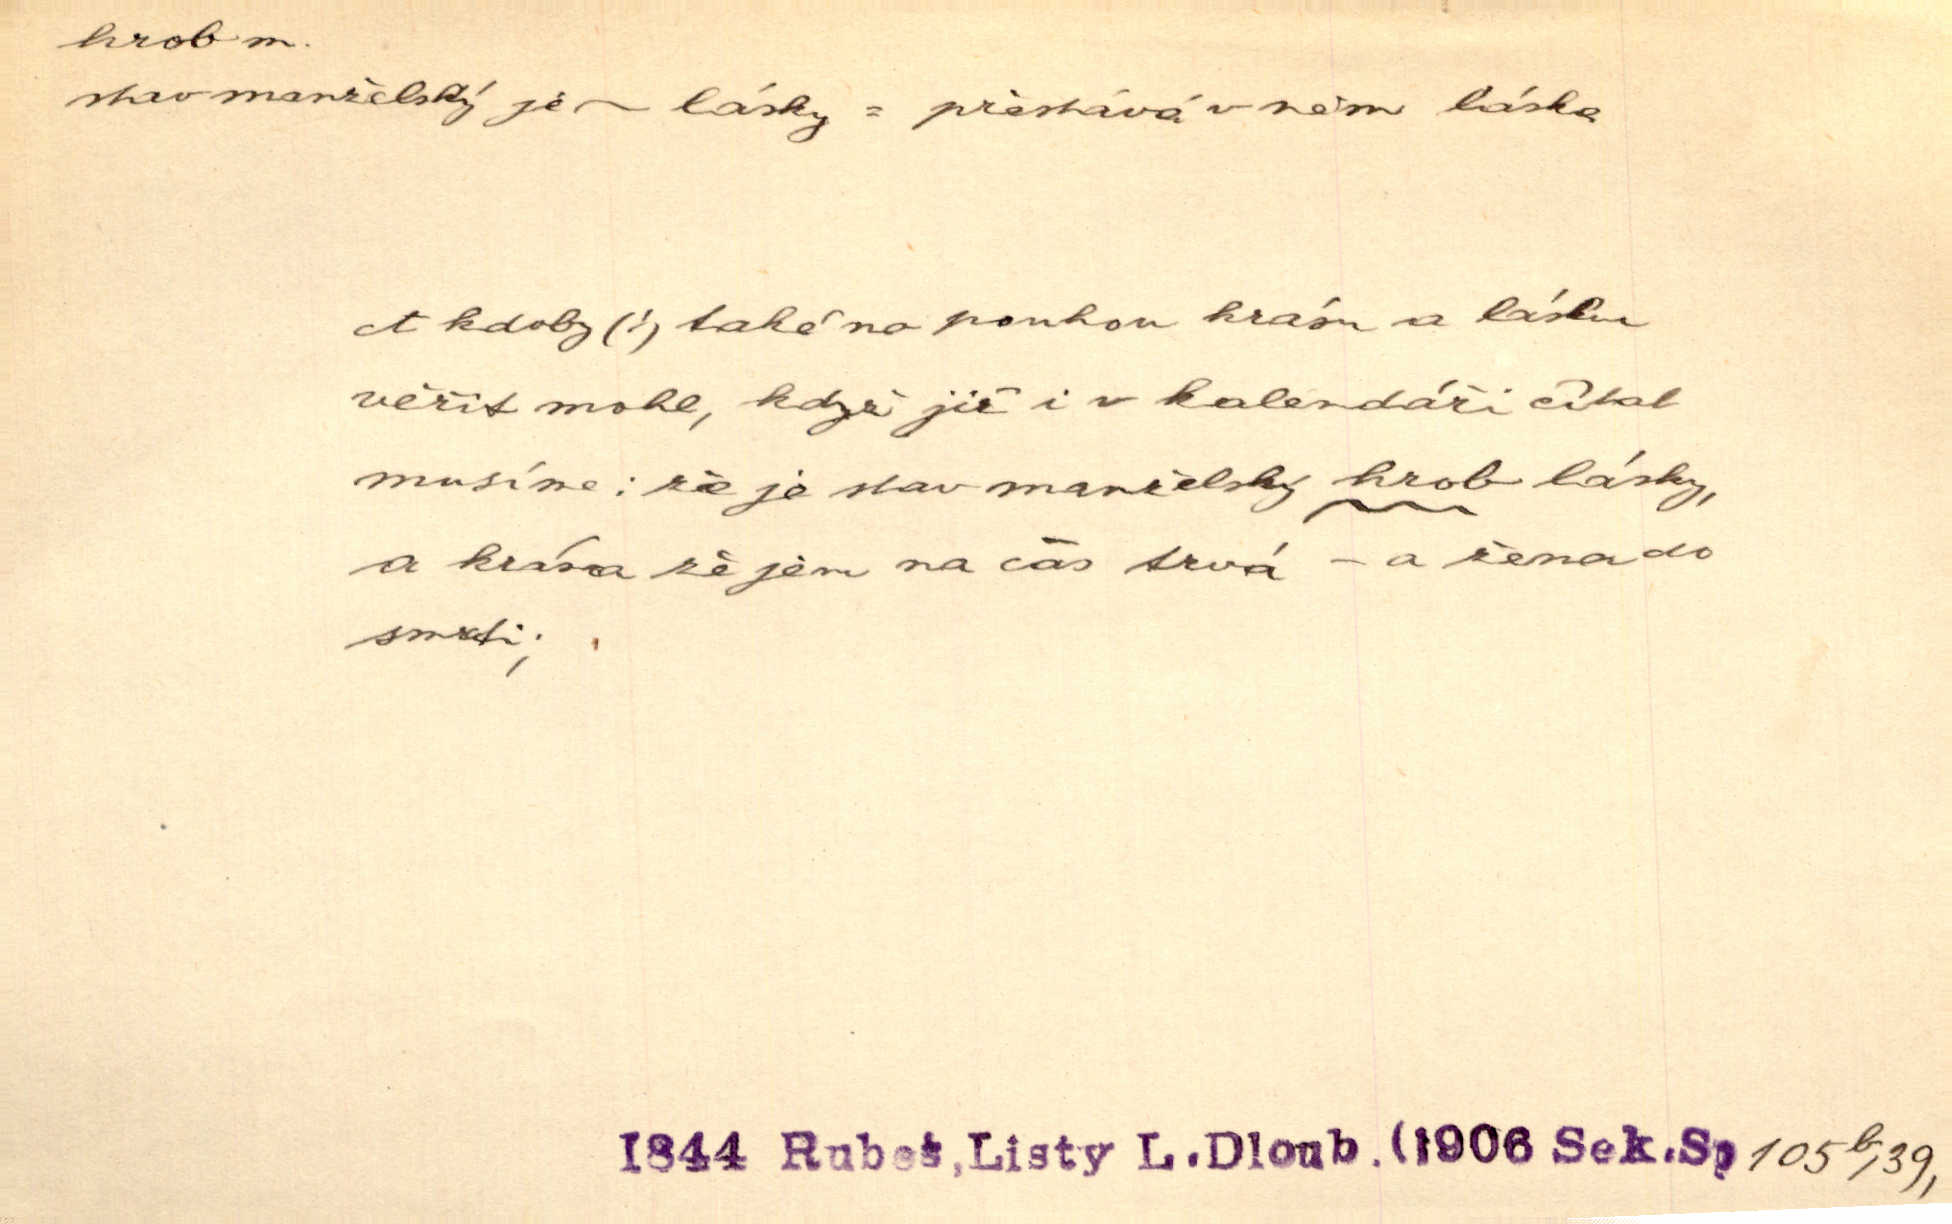 hrob m.
stav manželský je ~ lásky = přestává v něm láska
A kdoby (!) také na pouhou krásu a lásku
věřit mohl, když již i v kalendáři čítat
musíme: že je stav manželský hrob lásky,
a krása že jen na čas trvá – a žena do
smrti;
1844 Rubeš, Listy L.Dloub.(1906 Sek.Sp 105b,39,